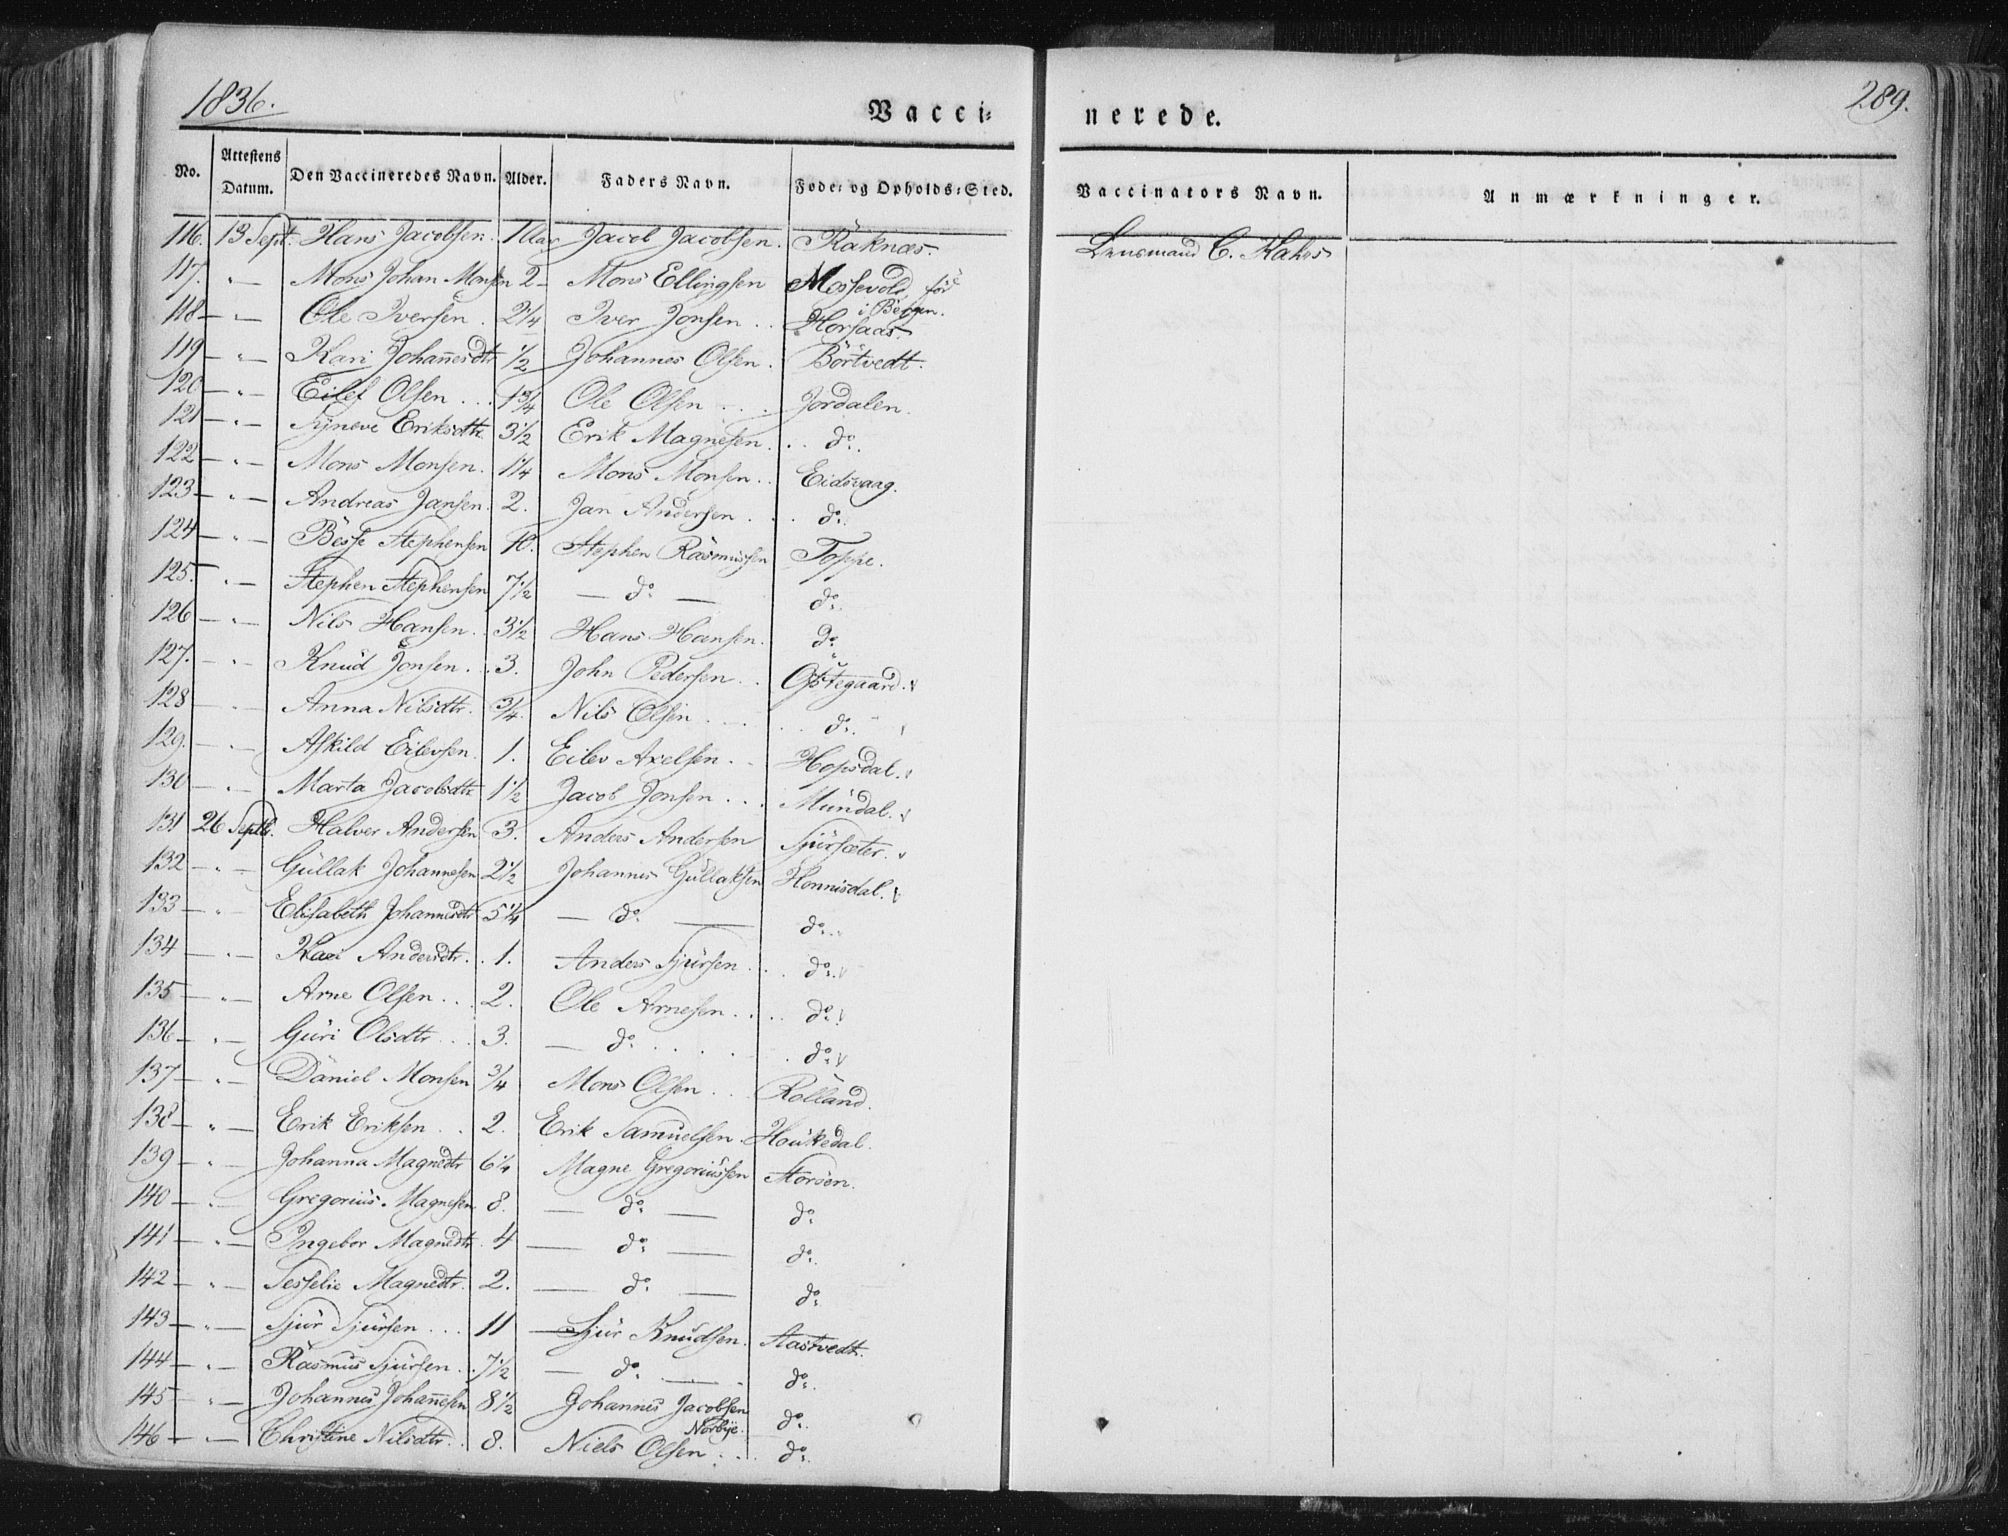 1836.
Vacci= nerede.
289.
No. Attestens Datum. Den Vaccineredes Navn. Alder. Faders Navn. Føde= og Opholds=Sted. Vaccinators Navn. Anmærkninger.
116. 13 Sept. Hans Jacobsen. 1 Aar Jacob Jacobsen. Räknæs. Lensmand C. Kahrs
117. - „ - Mons Johan Monsen 2 - Mons Ellingsen Mossevold, fød i Bergen.
118 - „ - Ole Iversen. 2 1/4 Iver Jonsen .. Horsaas.
119 - „ - Kari Johan̄esdtr 1/2 Johannes Olsen. Börtvedt.
120 - „ - Eilef Olsen ... 1 3/4 Ole Olsen ... Jordalen.
121 - „ - Syneve Eriksdtr 3 1/2 Erik Magnesen. .. do.
122 - „ - Mons Monsen. 1 1/4 Mons Monsen .. Eidsvaag.
123 - „ - Andreas Jansen. 2. Jan Andersen ... do.
124 - „ - Besse Stephensen 10. Stephen Rasmussen Toppe.
125. - „ - Stephen Stephensen 7 1/2 — do — do.
126 - „ - Nils Hansen. 3 1/2 Hans Hansen. do.
127. - „ - Knud Jonsen .. 3. John Pedersen .. Östegaard.
128 - „ - Anna Nilsdtr. 3/4. Nils Olsen ... do.
129. - „ - Askild Eilevsen. 1. Eilev Axelsen .. Hopsdal.
130 - „ - Marta Jacobsdtr 1 1/2 Jacob Jonsen ... Mundal.
131 26 Septb. Halver Andersen 3. Anders Andersen Sjursæter.
132 - „ - Gullak Johannesen 2 1/2 Johannes Gullaksen Honnisdal.
133 - „ - Elisabeth Johannesdtr 5 1/4 — do. — do.
134 - „ - Kari Andersdtr. 1. Anders Sjursen ... do.
135 - „ - Arne Olsen ... 2. Ole Arnesen ... do.
136 - „ - Guri Olsdtr ... 3. — do. ... do.
137 - „ - Daniel Monsen 3/4 Mons Olsen ... Rolland.
138 - „ - Erik Eriksen .. 2. Erik Samuelsen. Haukedal.
139 - „ - Johanna Magnedtr 6 1/4 Magne Gregoriussen Storöen.
140 - „ - Gregorius Magnesen 8. — do. — do.
141 - „ - Ingebor Magnedtr. 4 — do. — do.
142 - „ - Sesselie Magnedtr. 2. — do. — do.
143 - „ - Sjur Sjursen ... 11 Sjur Knudsen. Aastvedt.
144 - „ - Rasmus Sjursen .. 7 1/2 — do. — do.
145 - „ - Johannes Johan̄esen 8 1/2 Johannes Jacobsen Norbye. do.
146 - „ - Christine Nilsdtr. 8. Niels Olsen ... do.